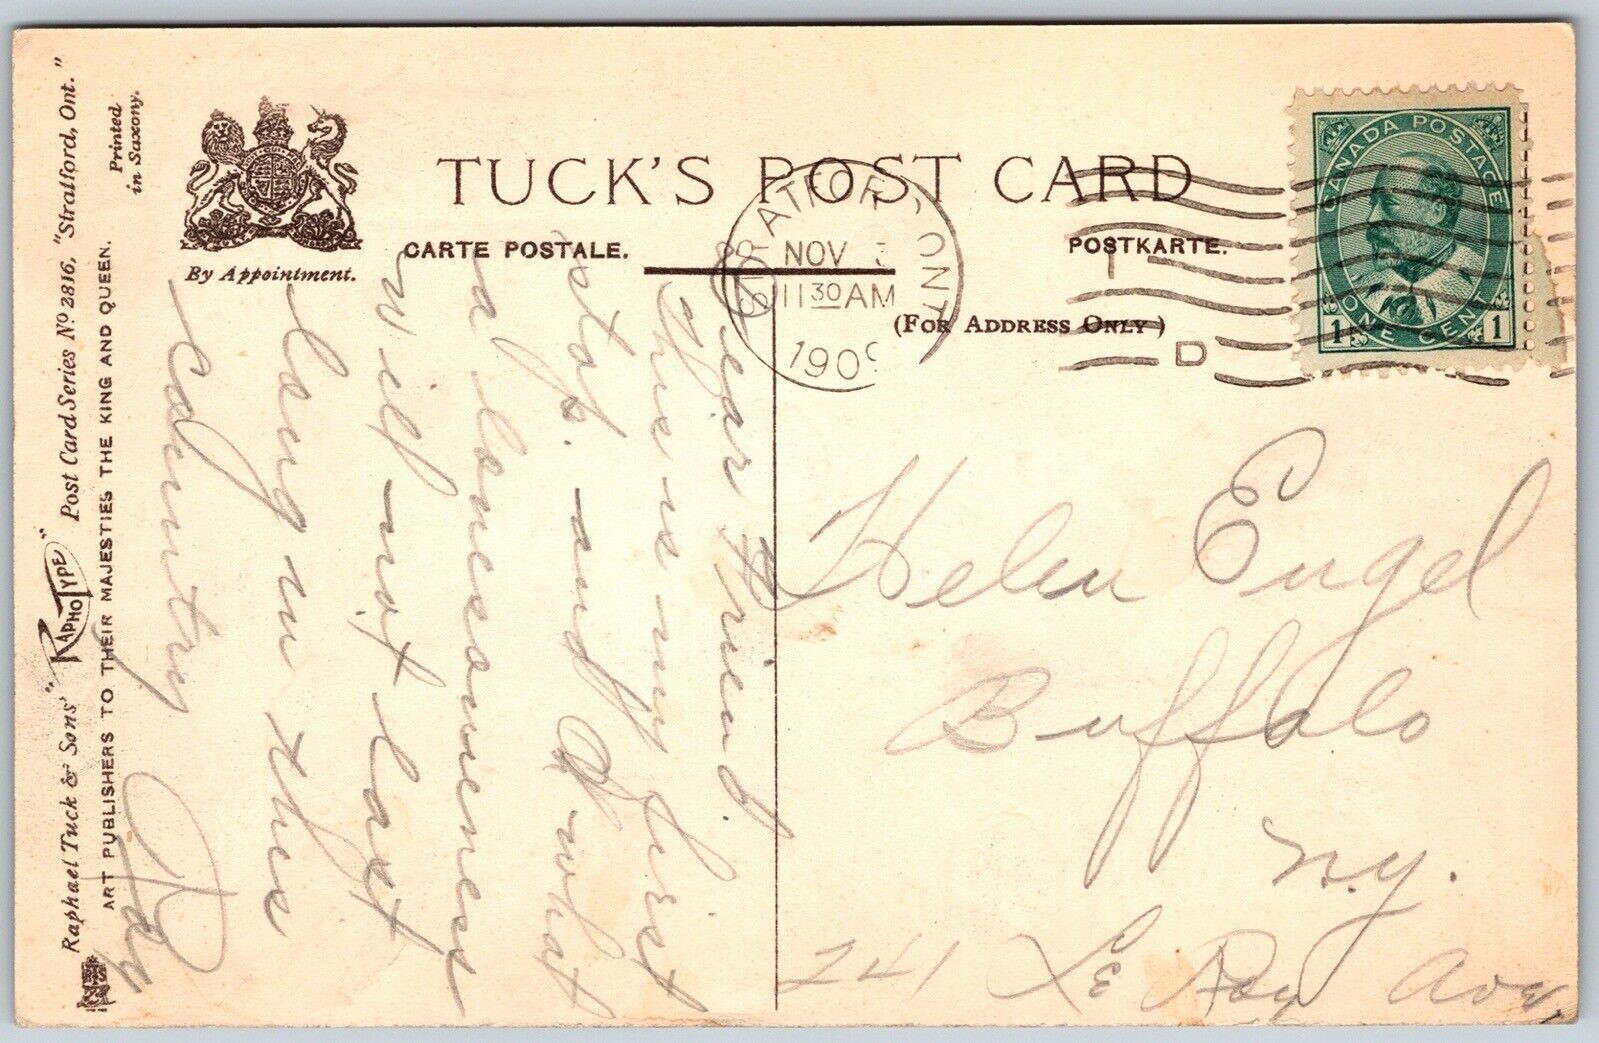 Raphael Tuck & Sons' "RAPHOTYPE" Post Card Series Nº 2816, "Stratford, Ont."
ART PUBLISHERS TO THEIR MAJESTIES THE KING AND QUEEN.
Printed
in Saxony.
By Appointment.
TUCK'S POST CARD
CARTE POSTALE.
POSTKARTE.
(FOR ADDRESS ONLY)
STRATFORD ONT
NOV 3
11 30 AM
1909
D
CANADA POSTAGE
1 ONE CENT 1
Dear Friend.
This is my first
stop. and O what
a lonesomeness
will not last
long in this
country
Ray
Helen Engel
Buffalo
N.Y.
241 Le Roy Ave,